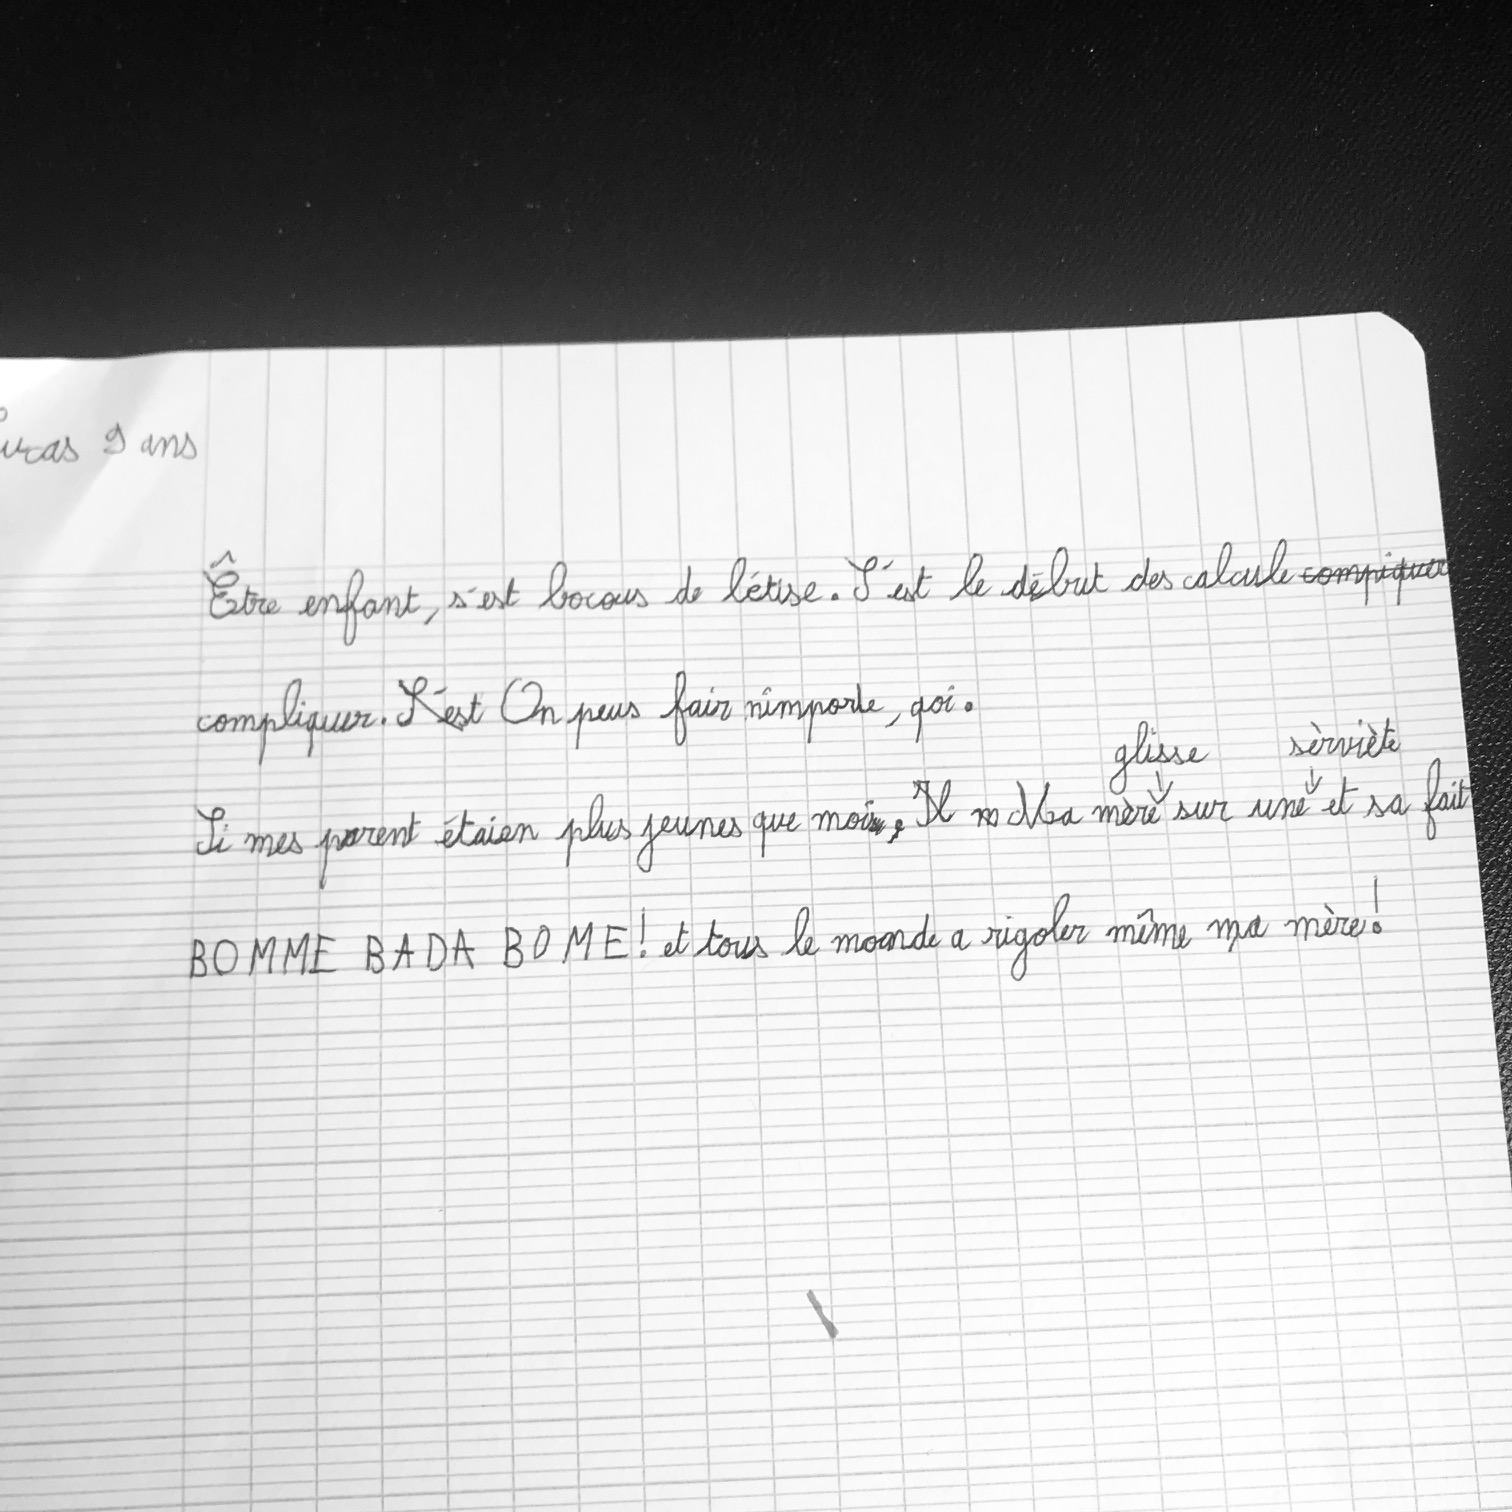 Lucas 9 ans
Être enfant, s'est bocous de bétise. S'est le début des calcule compiquer
compliquer. S'est On peus fair n'importe, qoi.
glisse sèrviète
Si mes parent étaien plus jeunes que moi, Il m Ma mère sur une et sa fait
BOMME BADA BOME! et tous le monde a rigoler même ma mère!